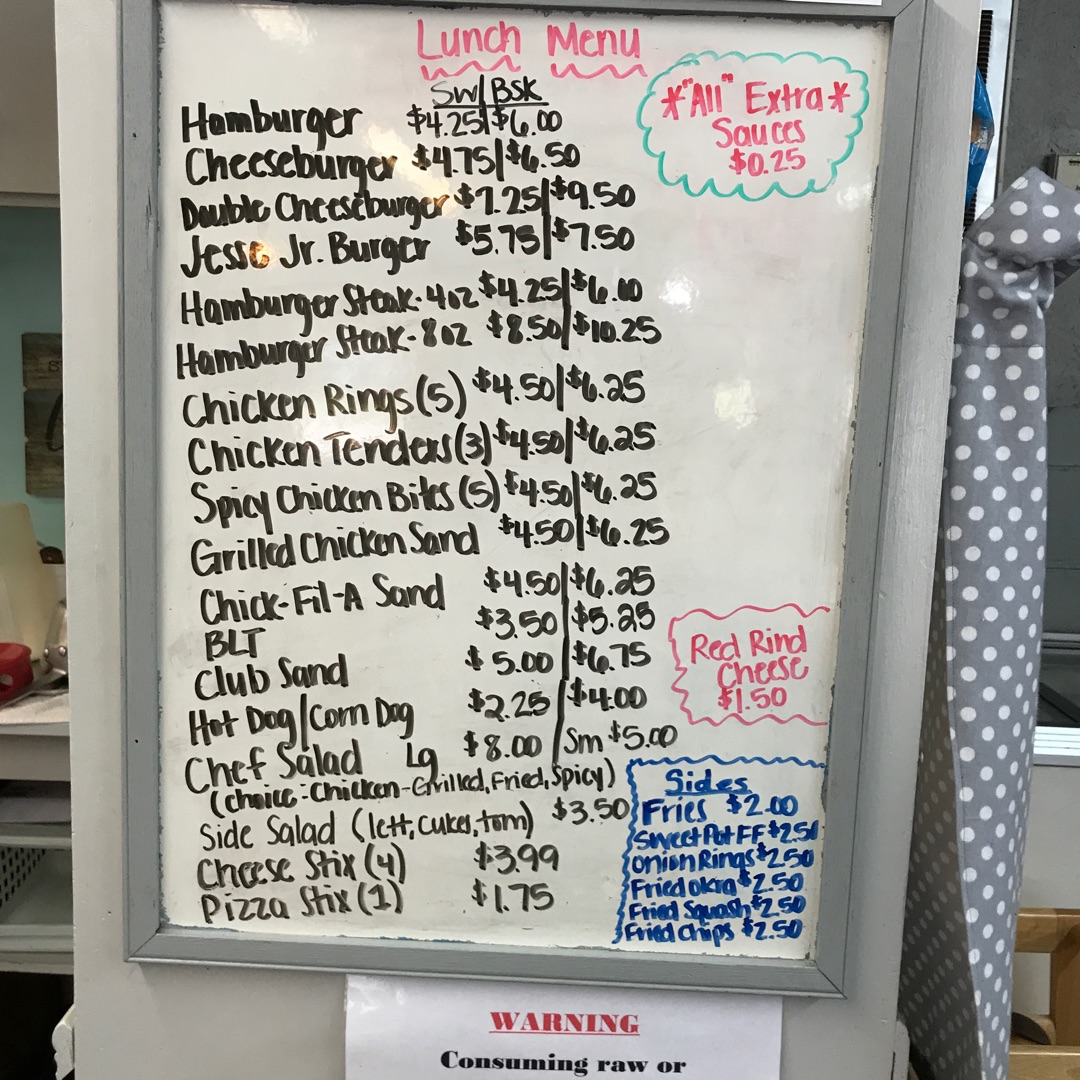 Lunch Menu
Sw/Bsk
Hamburger $4.25|$6.00
Cheeseburger $4.75|$6.50
Double Cheeseburger $7.25|$9.50
Jesse Jr. Burger $5.75|$7.50
Hamburger Steak-4oz $4.25|$6.00
Hamburger Steak-8oz $8.50|$10.25
Chicken Rings (5) $4.50|$6.25
Chicken Tenders (3) $4.50|$6.25
Spicy Chicken Bites (5) $4.50|$6.25
Grilled Chicken Sand $4.50|$6.25
Chick-Fil-A Sand $4.50|$6.25
BLT $3.50|$5.25
Club Sand $5.00|$6.75
Hot Dog/Corn Dog $2.25|$4.00
Chef Salad Lg $8.00|Sm $5.00
(choice: Chicken-Grilled, Fried, Spicy)
Side Salad (lett, cukes, tom) $3.50
Cheese Stix (4) $3.99
Pizza Stix (1) $1.75
*"All" Extra*
Sauces
$0.25
Red Rind
Cheese
$1.50
Sides
Fries $2.00
Sweet Pot FF $2.50
Onion Rings $2.50
Fried Okra $2.50
Fried Squash $2.50
Fried Chips $2.50
WARNING
Consuming raw or